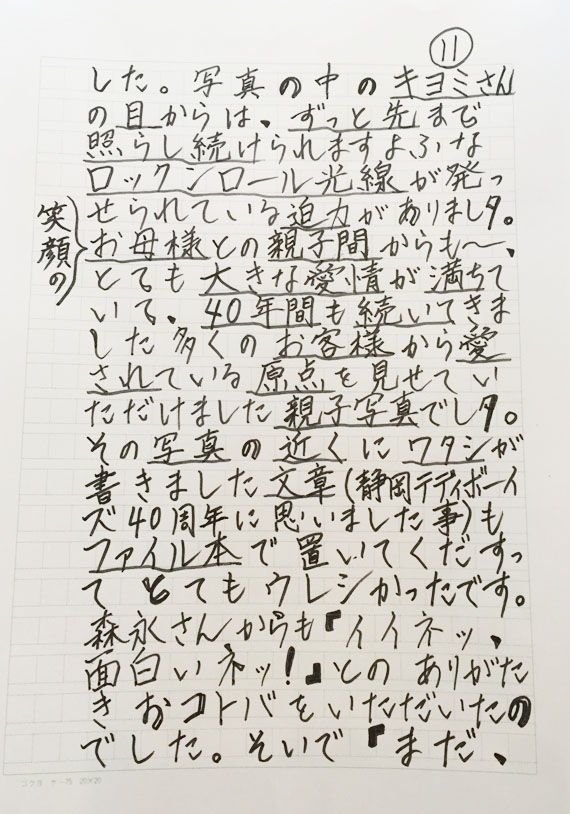 11
した。写真の中のキヨミさん
の目からは、ずっと先まで
照らし続けられますよふな
ロックンロール光線が発っ
せられている迫力がありましタ。
笑顔の
お母様との親子間からも〜、
とても大きな愛情が満ちて
いて、40年間も続いてきま
した多くのお客様から愛
されている原点を見せてい
ただけました親子写真でしタ。
その写真の近くにワタシが
書きました文章(静岡テディボーイ
ズ40周年に思いました事)も
ファイル本で置いてくだすっ
てとてもウレシかったです。
森永さんからも『イイネッ、
面白いネッ!』とのありがた
きおコトバをいただいたの
でした。そいで『まだ、
コクヨ ケー75 20×20